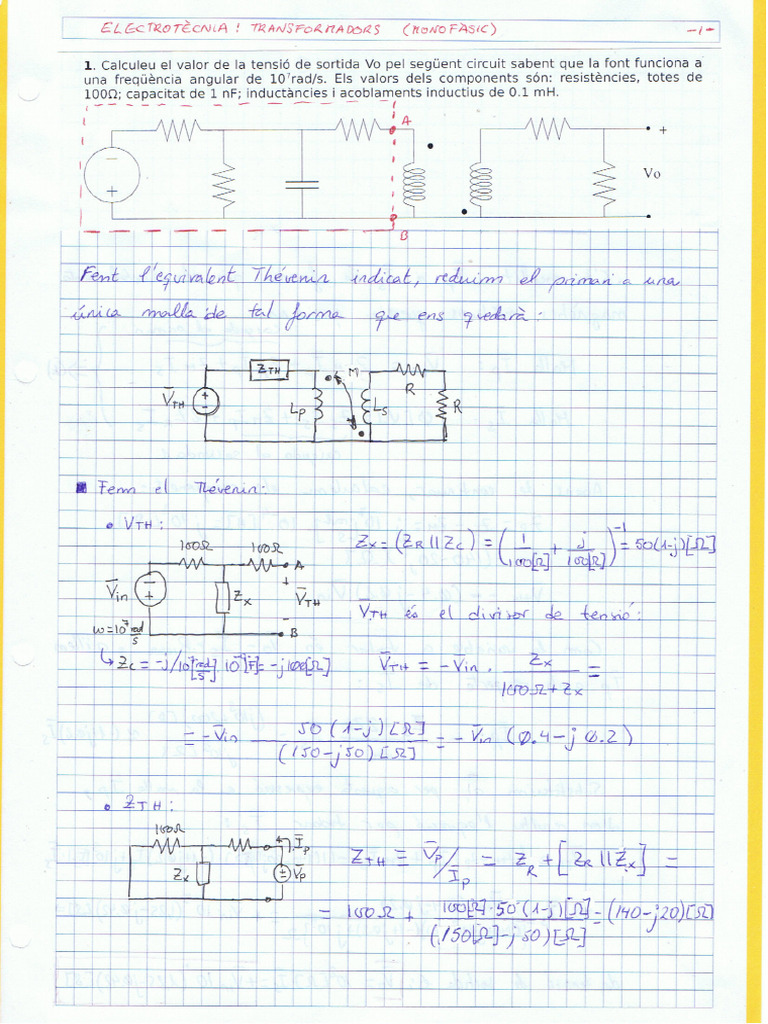 ELECTROTÈCNIA: TRANSFORMADORS (MONOFÀSIC) -1-
1. Calculeu el valor de la tensió de sortida Vo pel següent circuit sabent que la font funciona a
una freqüència angular de 10⁷rad/s. Els valors dels components són: resistències, totes de
100Ω; capacitat de 1 nF; inductàncies i acoblaments inductius de 0.1 mH.
A
+
Vo
B
Fent l'equivalent Thévenin indicat, reduim el primari a una
única malla de tal forma que ens quedarà:
Z_TH M R
V̄_TH + - L_P L_S R
Fem el Thévenin:
• V_TH:
100Ω 100Ω A
V̄in - + Z_X + V̄_TH - B
ω=10⁷ rad/s
Z_X = (Z_R || Z_C) = (1/100[Ω] + j/100[Ω])⁻¹ = 50(1-j)[Ω]
V̄_TH és el divisor de tensió:
↳ Z_C = -j/10⁷[rad/s] 10⁻⁹[F] = -j100[Ω]
V̄_TH = -V̄in · Z_X/(100Ω + Z_X) =
= -V̄in 50(1-j)[Ω]/(150-j50)[Ω] = -V̄in (0.4-j0.2)
• Z_TH:
100Ω Ī_P
Z_X + - V̄_P
Z_TH ≡ V̄_P/Ī_P = Z_R + [Z_R || Z_X] =
= 100Ω + 100[Ω]·50·(1-j)[Ω]/(150[Ω]-j50)[Ω] = (140-j20)[Ω]